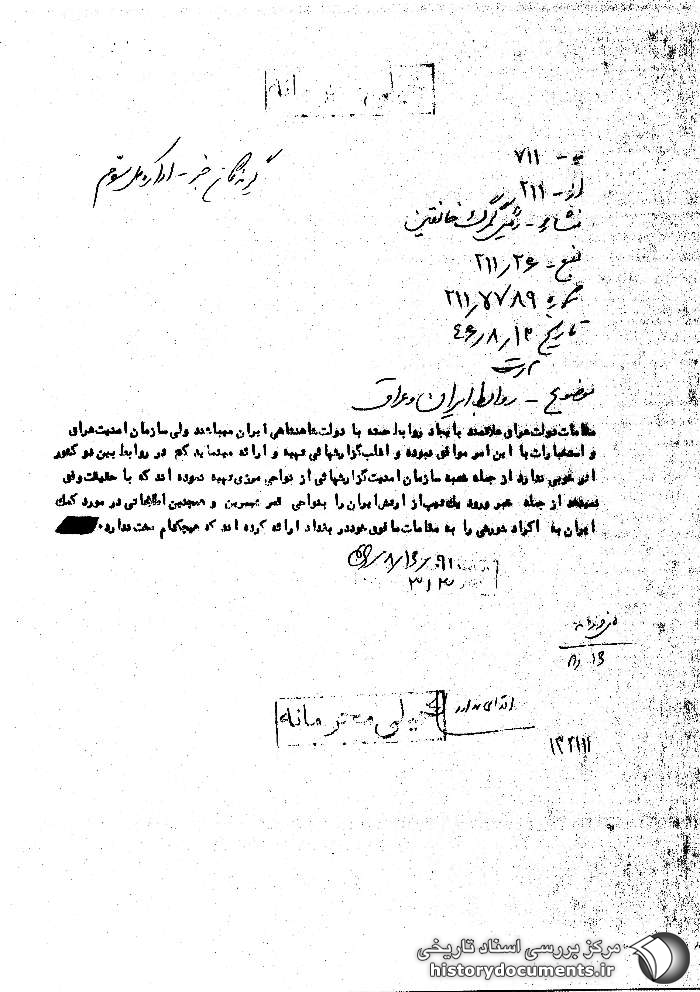 خیلی محرمانه
گیرندگان خبر - اداره کل سوم
به - ۷۱۱
از - ۲۱۱
منشاء - رئیس گمرک خانقین
منبع - ۲۱۱٫۲۶
تاریخ ۴۶٫۸٫۱۳
موضوع - روابط ایران و عراق
مقامات دولت عراق علاقمند بایجاد روابط حسنه با دولت شاهنشاهی ایران میباشند ولی سازمان امنیت عراق
و استخبارات با این امر موافق نبوده و اغلب گزارشهائی تهیه و ارائه مینماید که در روابط بین دو کشور
اثر خوبی ندارد از جمله شعبه سازمان امنیت گزارشهائی از نواحی مرزی تهیه نموده اند که با حقیقت وفق
نمیدهد از جمله خبر ورود یک تیپ از ارتش ایران را بنواحی قصر شیرین و همچنین اطلاعاتی در مورد کمک
ایران به اکراد شورشی را به مقامات مافوق خود در بغداد ارائه کرده اند که هیچکدام صحت ندارد.
۳۱۳
۱۳ر۸
اقدامی ندارد
خیلی محرمانه
مرکز بررسی اسناد تاریخی
historydocuments.ir